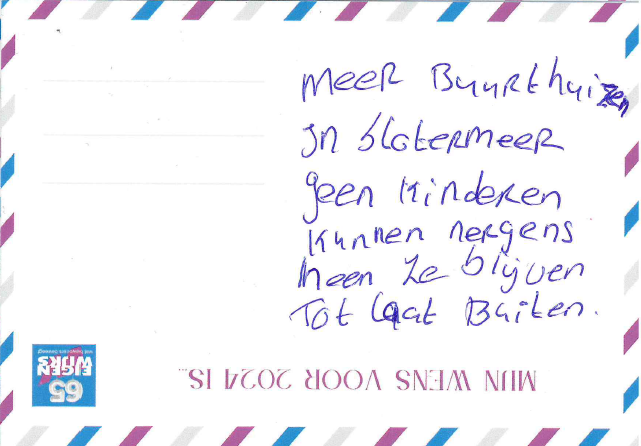 Meer Buurthuizen
In Slotermeer
geen Kinderen
Kunnen nergens
heen Ze blijven
Tot laat Buiten.
MIJN WENS VOOR 2024 IS...
65
EIGEN
WIJKS